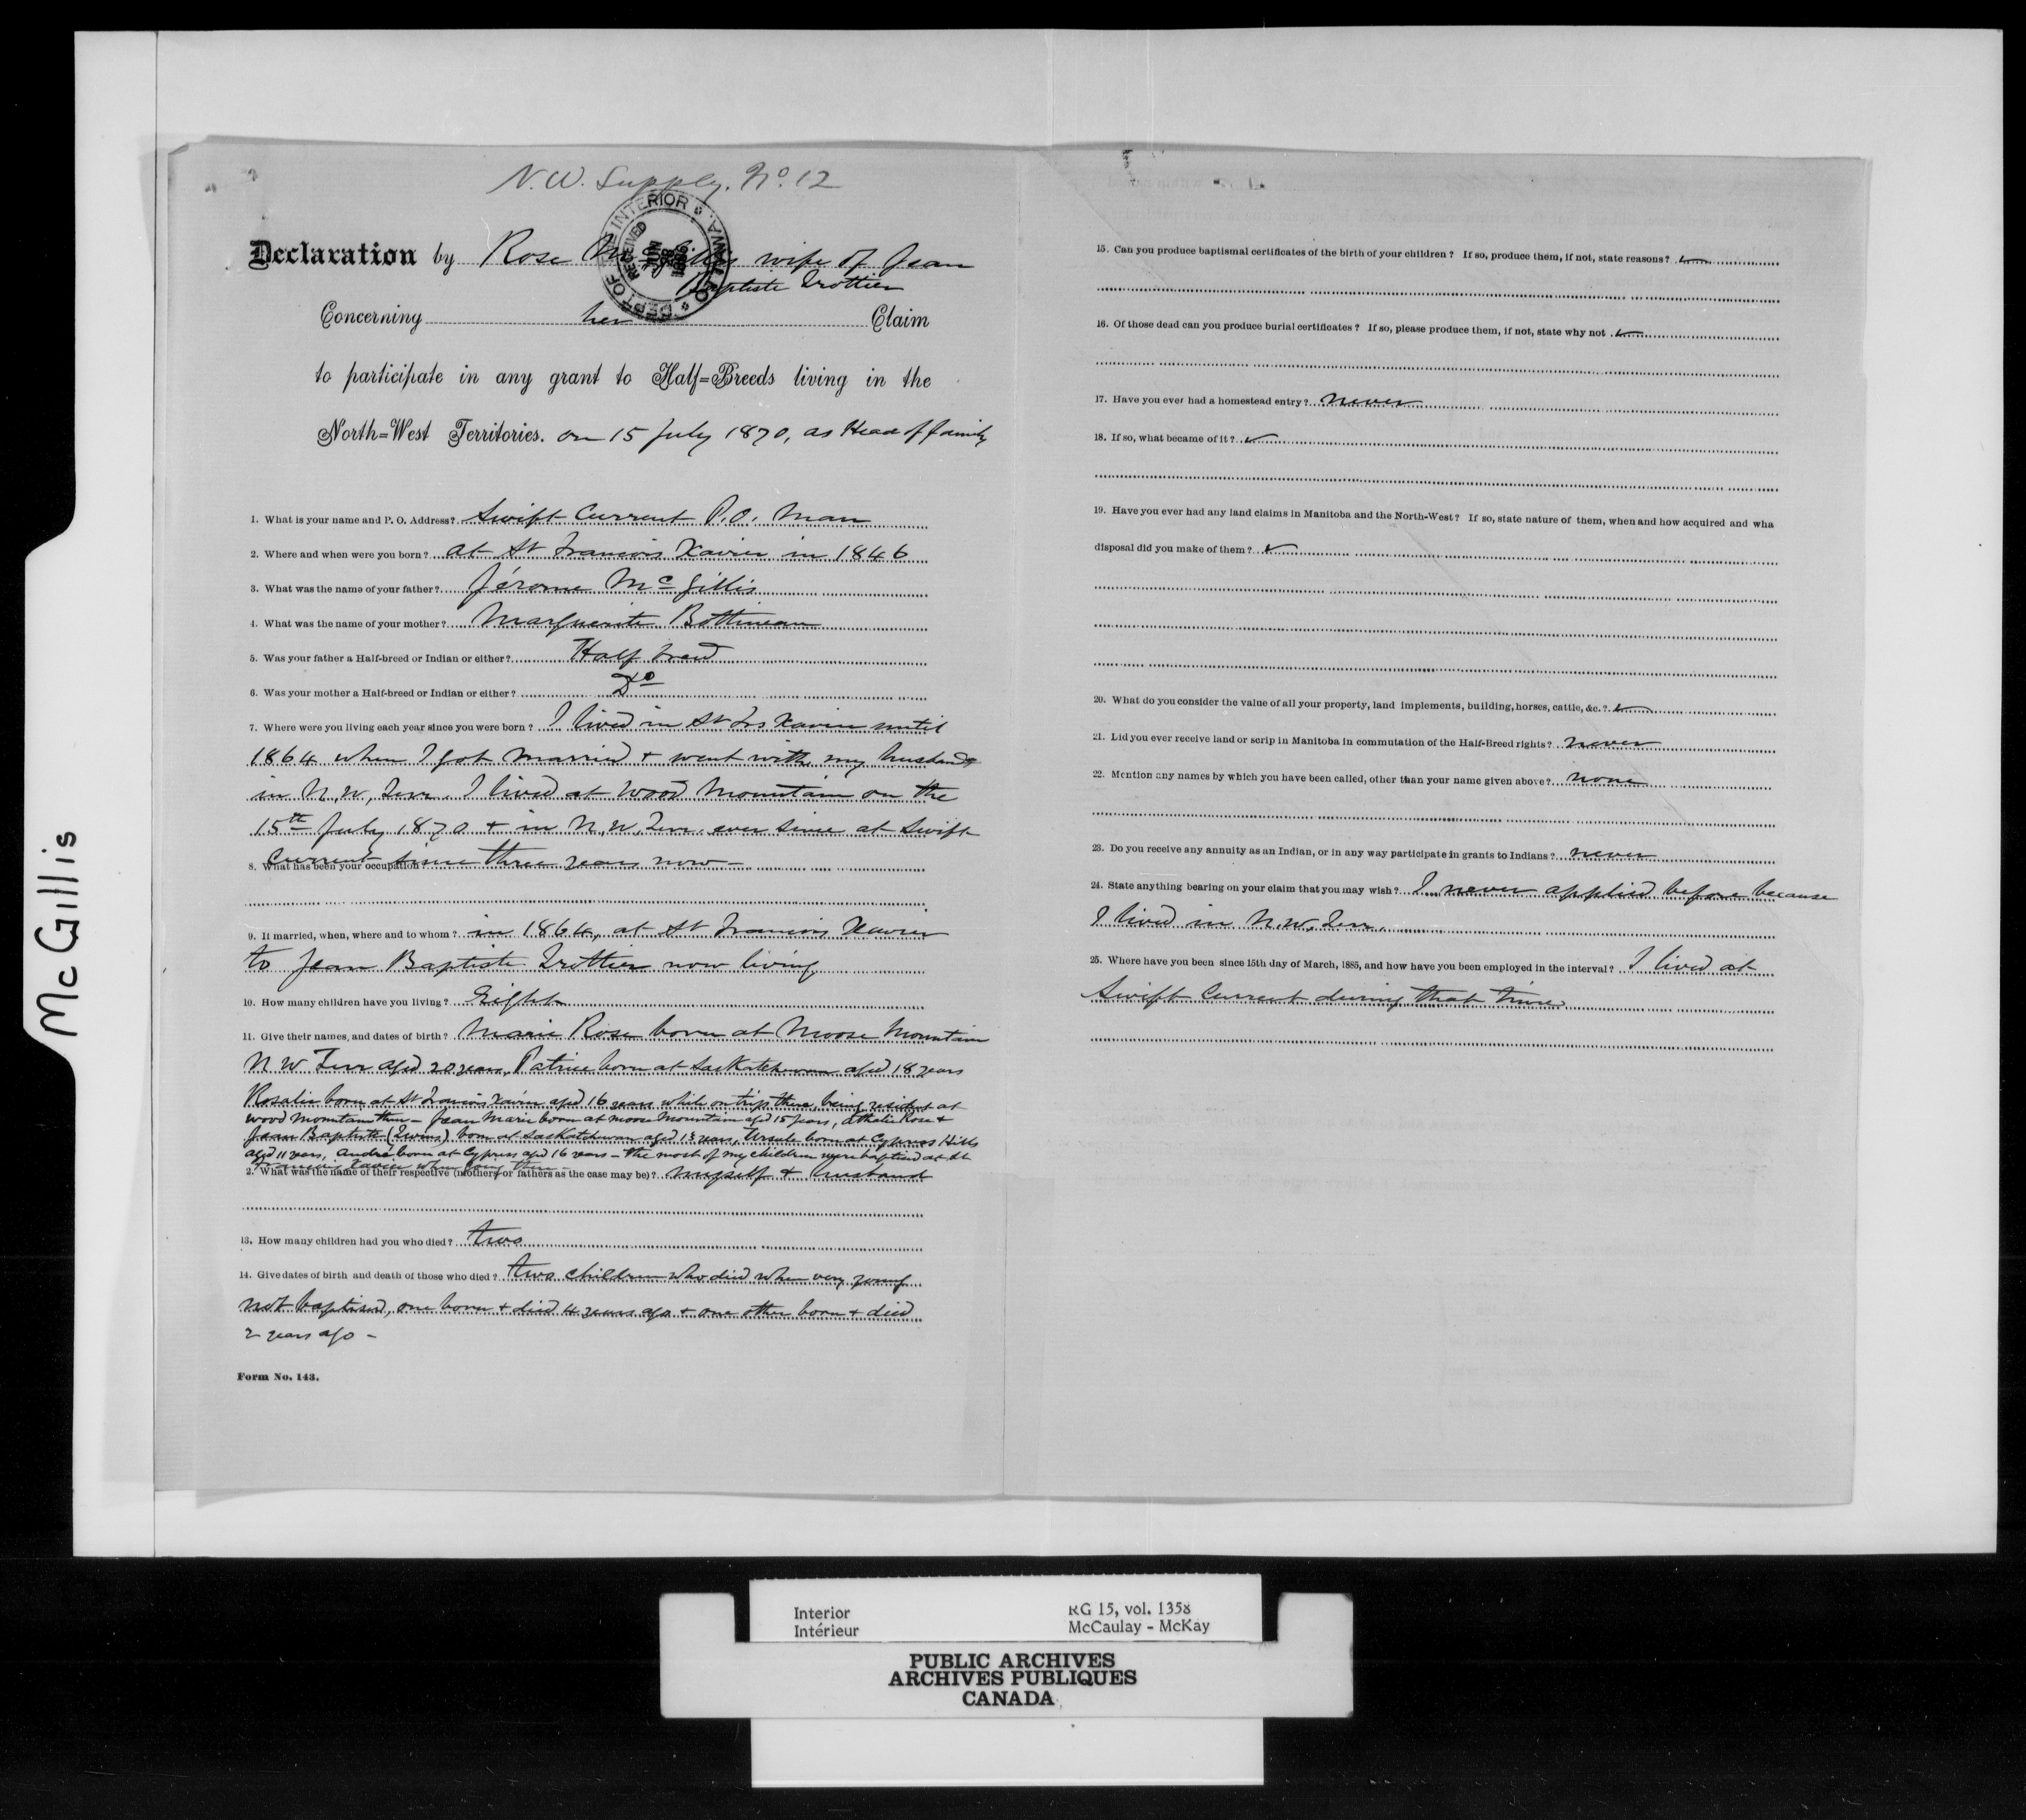 McGillis
N.W. Supply. No. 12
DEPT OF THE INTERIOR OTTAWA
RECEIVED
Declaration by Rose McGillis wife of Jean
Baptiste Trottier
Concerning her Claim
to participate in any grant to Half=Breeds living in the
North=West Territories. on 15 July 1870, as Head of family
1. What is your name and P. O. Address? Swift Current P.O. Man
2. Where and when were you born? at St Francois Xavier in 1846
3. What was the name of your father? Jérome McGillis
4. What was the name of your mother? Marguerite Bottineau
5. Was your father a Half-breed or Indian or either? Half breed
6. Was your mother a Half-breed or Indian or either? Do
7. Where were you living each year since you were born? I lived in St Frs Xavier until
1864 when I got married + went with my husband
in N.W. Terr. I lived at Wood Mountain on the
15th July 1870 + in N.W. Terr. ever since at Swift
Current since three years now -
8. What has been your occupation?
9. If married, when, where and to whom? in 1864, at St Francois Xavier
to Jean Baptiste Trottier now living
10. How many children have you living? Eight
11. Give their names, and dates of birth? Marie Rose born at Moose Mountain
N W Terr aged 20 years, Patrice born at Saskatchewan aged 18 years
Rosalie born at St Francois Xavier aged 16 years while on trip there, being resident at
Wood Mountain then - Jean Marie born at Moose Mountain aged 15 years, Athalie Rose +
Jean Baptiste (Twins) born at Saskatchewan aged 13 years, Ursule born at Cypress Hills
aged 11 years, André born at Cypress aged 16 years - the most of my children were baptised at St
Francois Xavier when going there -
2. What was the name of their respective (mothers or fathers as the case may be)? myself + husband
13. How many children had you who died? two
14. Give dates of birth and death of those who died? two children who died when very young
not baptised, one born + died 4 years ago + one other born + died
2 years ago -
Form No. 143.
15. Can you produce baptismal certificates of the birth of your children? If so, produce them, if not, state reasons?
16. Of those dead can you produce burial certificates? If so, please produce them, if not, state why not
17. Have you ever had a homestead entry? never
18. If so, what became of it?
19. Have you ever had any land claims in Manitoba and the North-West? If so, state nature of them, when and how acquired and wha
disposal did you make of them?
20. What do you consider the value of all your property, land implements, building, horses, cattle, &c.?
21. Did you ever receive land or scrip in Manitoba in commutation of the Half-Breed rights? never
22. Mention any names by which you have been called, other than your name given above? none
23. Do you receive any annuity as an Indian, or in any way participate in grants to Indians? never
24. State anything bearing on your claim that you may wish? I never applied before because
I lived in N.W. Terr.
25. Where have you been since 15th day of March, 1885, and how have you been employed in the interval? I lived at
Swift Current during that time
Interior RG 15, vol. 1358
Intérieur McCaulay - McKay
PUBLIC ARCHIVES
ARCHIVES PUBLIQUES
CANADA